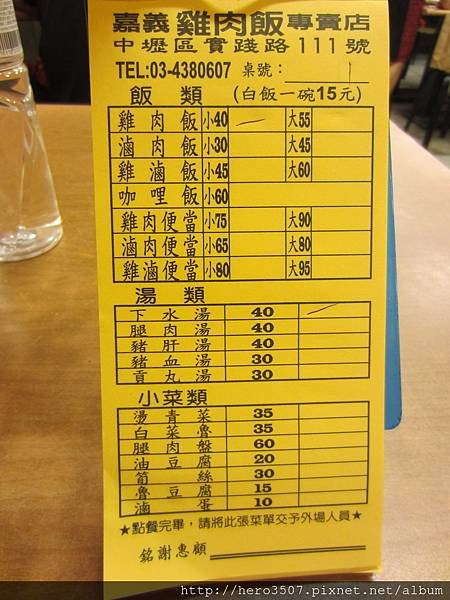 嘉義雞肉飯專賣店
中壢區實踐路111號
TEL:03-4380607 桌號：1
飯類 (白飯一碗15元)
雞肉飯 小40 大55
滷肉飯 小30 大45
雞滷飯 小45 大60
咖哩飯 小60
雞肉便當 小75 大90
滷肉便當 小65 大80
雞滷便當 小80 大95
湯類
下水湯 40
腿肉湯 40
豬肝湯 40
豬血湯 30
貢丸湯 30
小菜類
燙青菜 35
白菜魯 35
腿肉盤 60
油豆腐 20
筍絲 30
魯豆腐 15
滷蛋 10
★點餐完畢，請將此張菜單交予外場人員★
銘謝惠顧
http://hero3507.pixnet.net/album